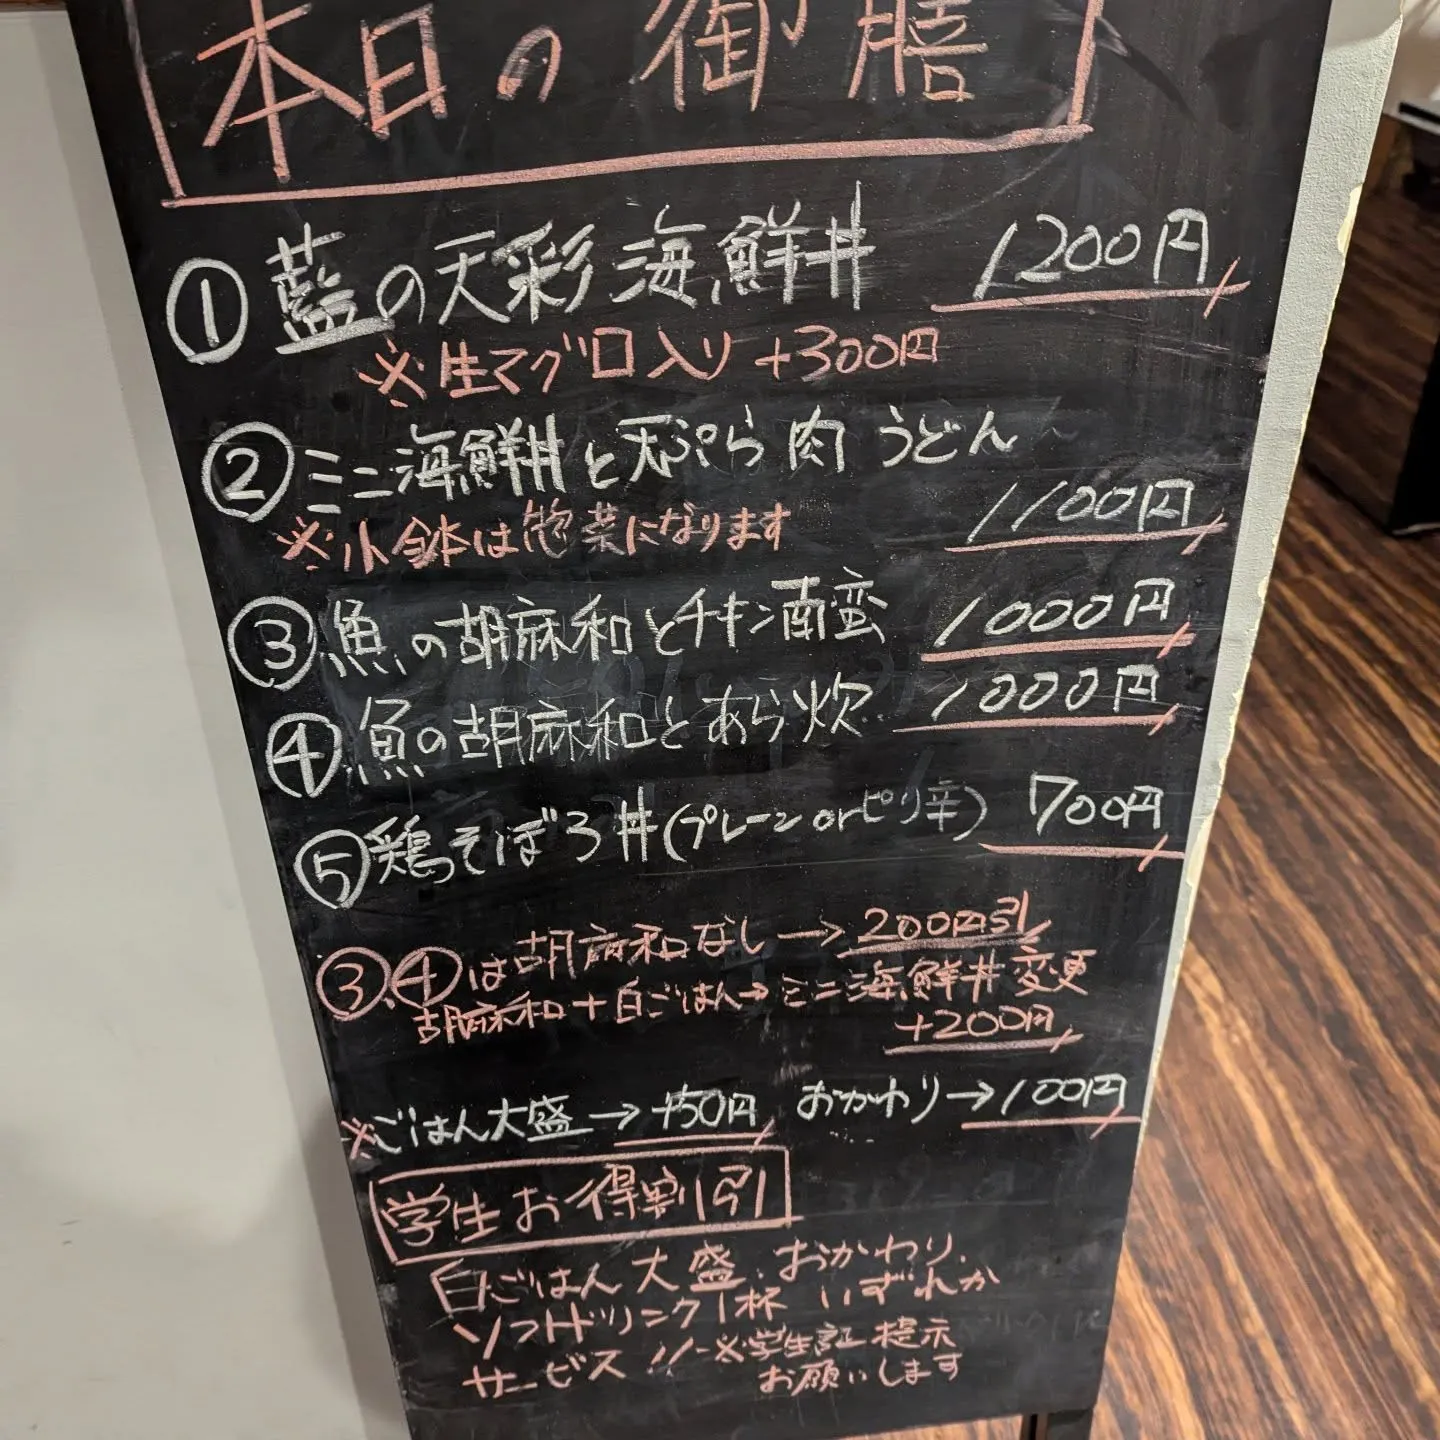 本日の御膳
①藍の天彩海鮮丼 1200円
※生マグロ入り +300円
②ミニ海鮮丼と天ぷら肉うどん
1100円
※小鉢は惣菜になります
③魚の胡麻和とチキン南蛮 1000円
④魚の胡麻和とあら炊 1000円
⑤鶏そぼろ丼(プレーンorピリ辛) 700円
③.④は胡麻和なし→200円引
胡麻和+白ごはん→ミニ海鮮丼変更
+200円
※ごはん大盛→+50円 おかわり→100円
学生お得割引
白ごはん大盛、おかわり、
ソフトドリンク1杯 いずれか
サービス!! ※学生証提示
お願いします